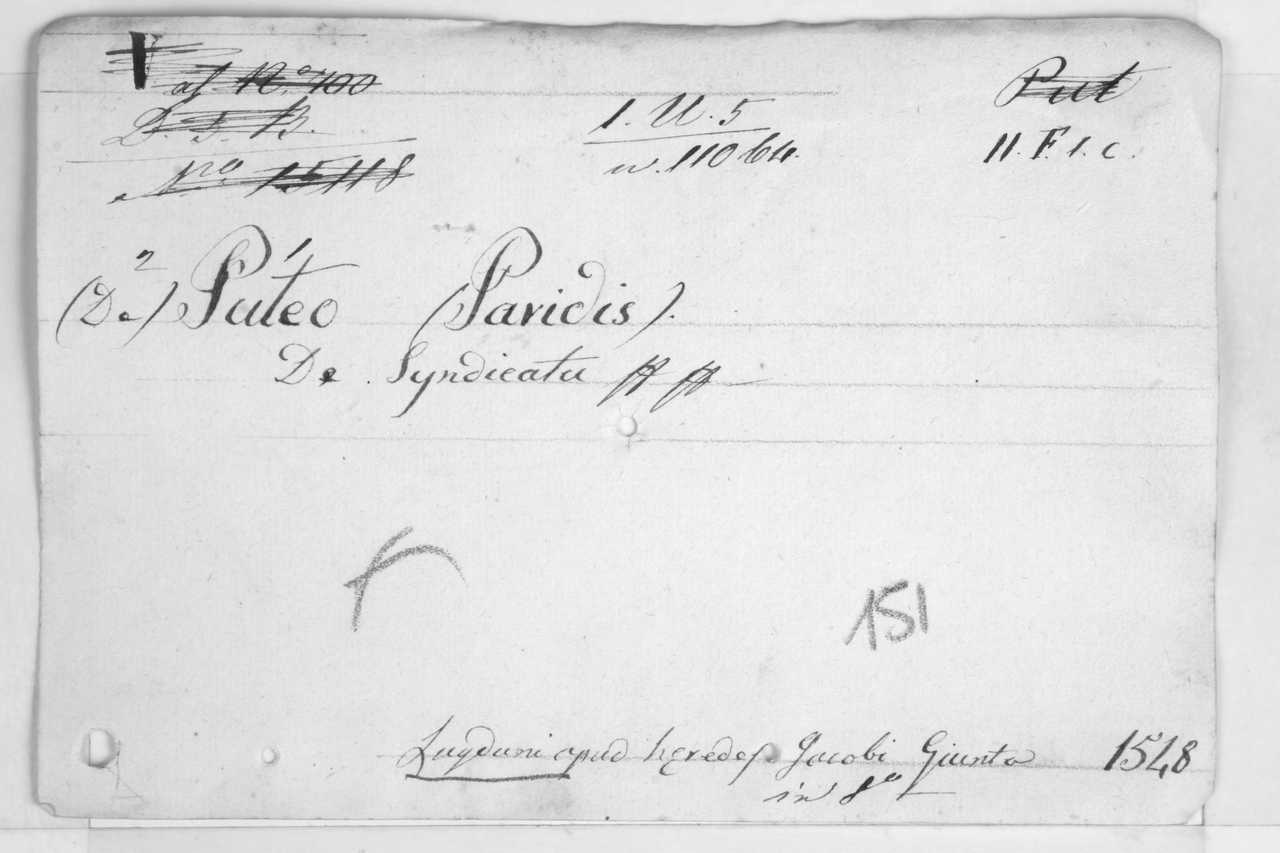 ad N.o 400
D. 5. B.
N.o 15118
1. U. 5
n. 11064.
Put
II. F. 1. c.
2 1
(De) Puteo (Paridis).
De Syndicatu
151
Lugduni apud hęredes Jacobi Giunta 1548
in 8o